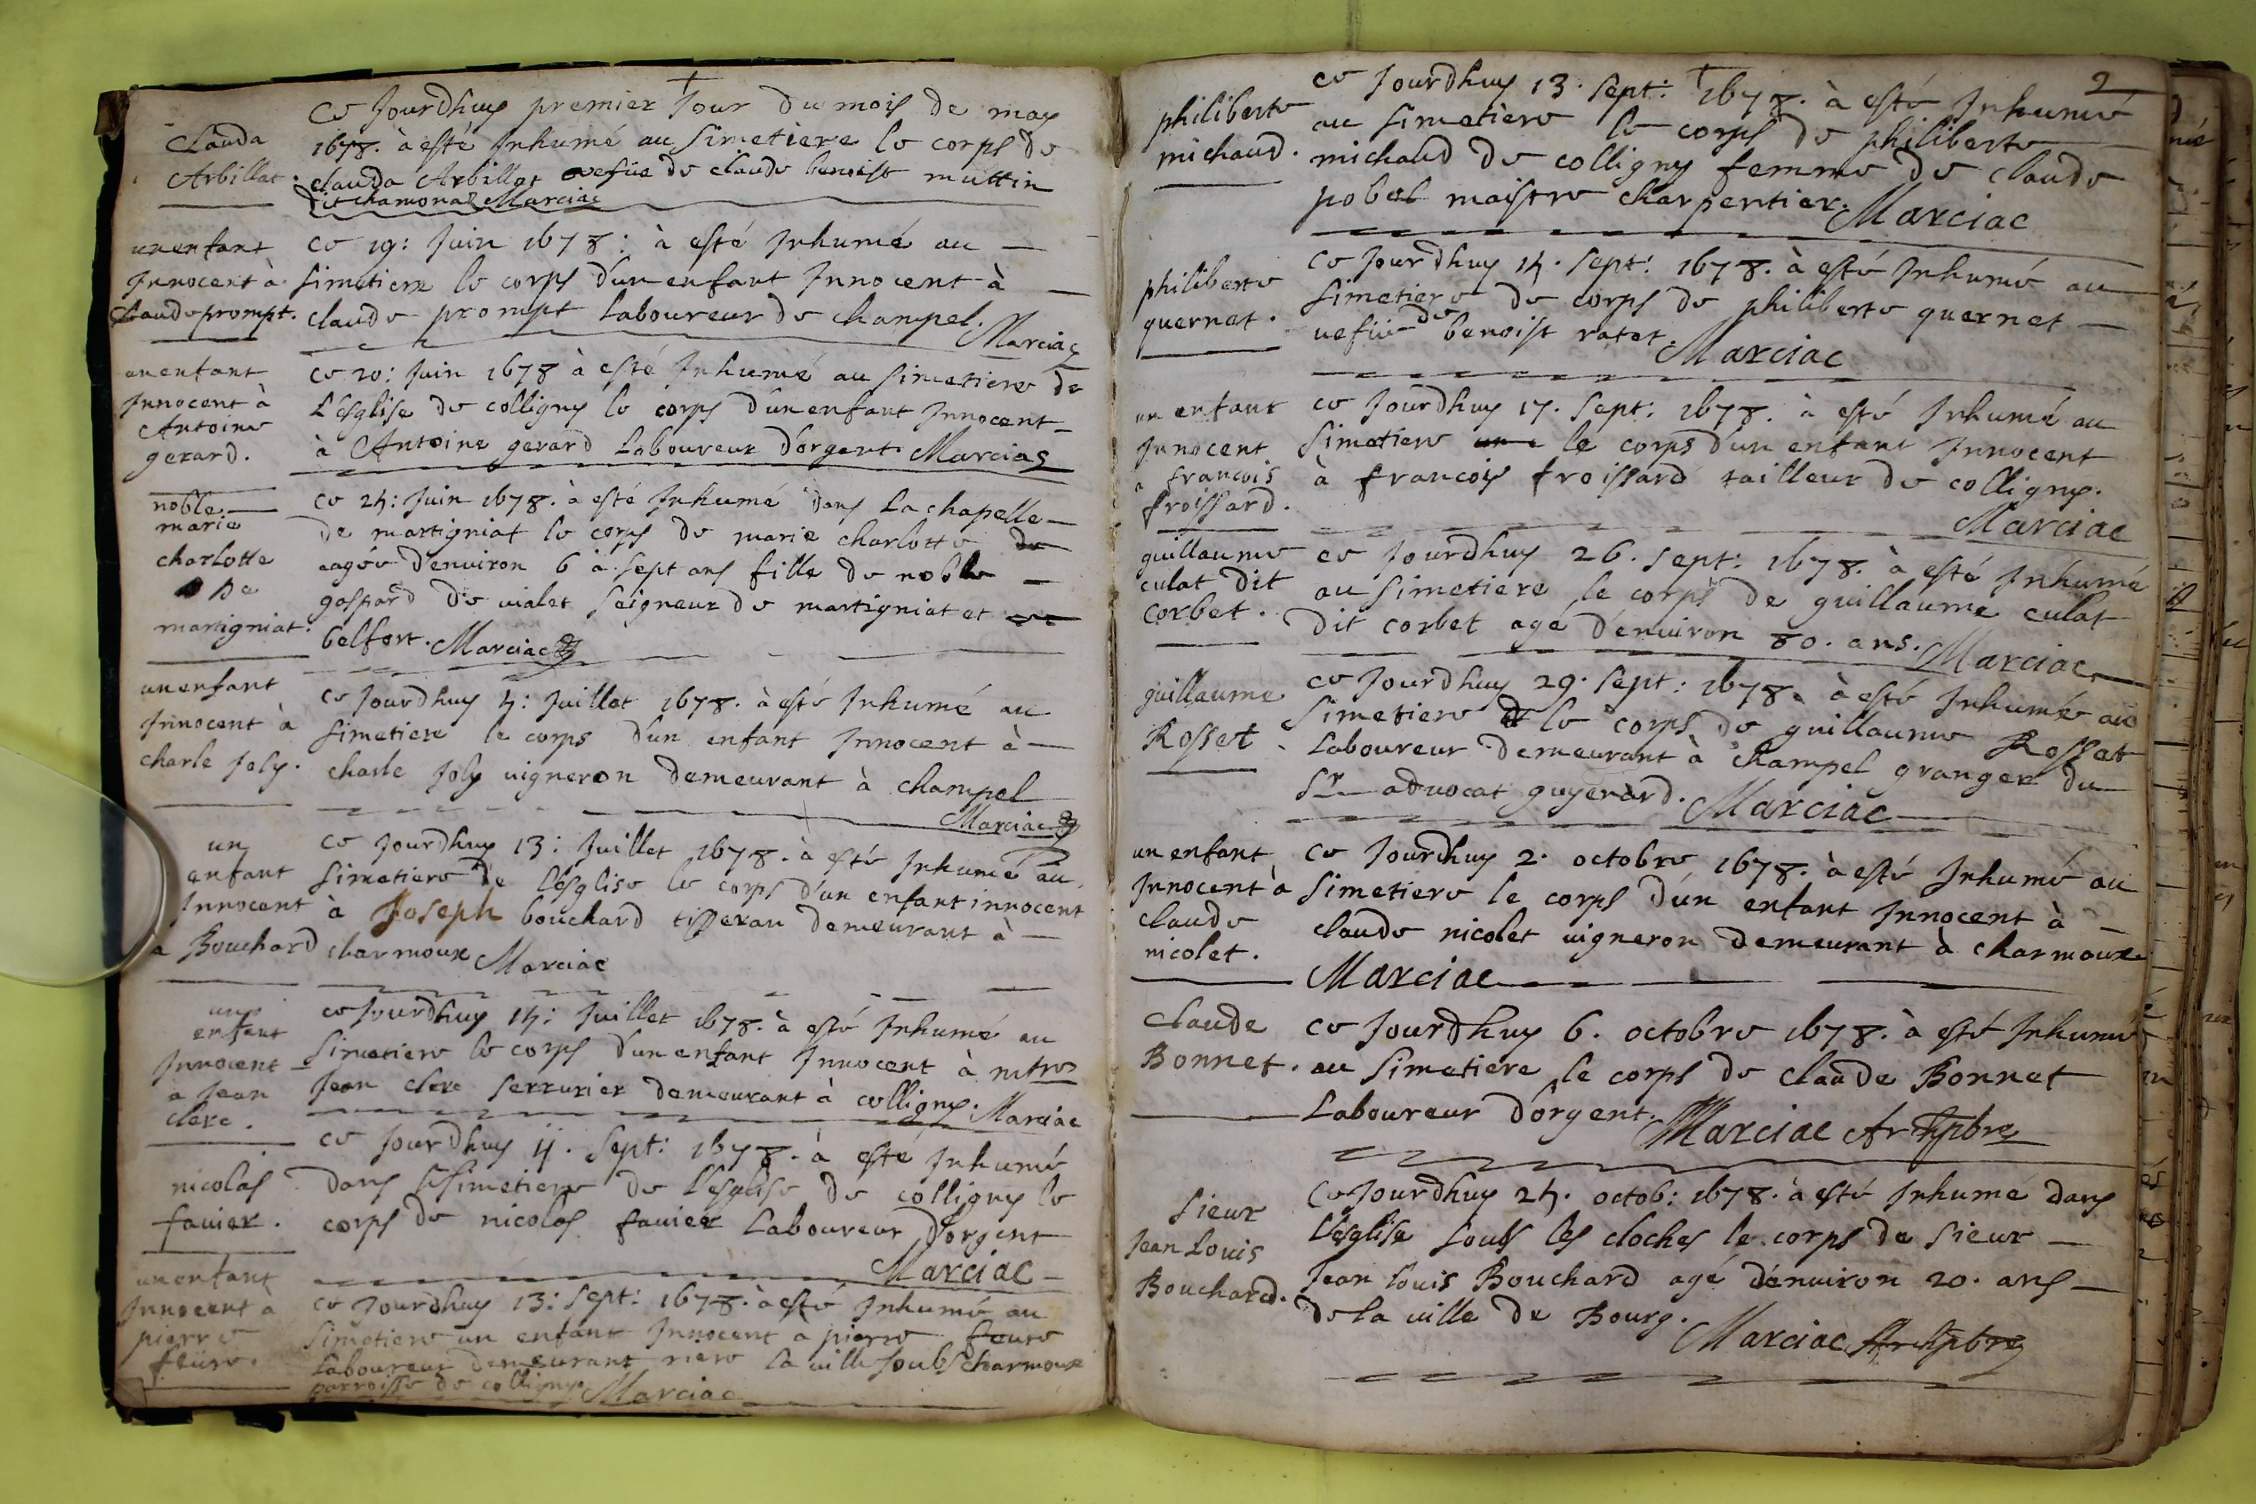 Clauda
Arbillat.
Ce Jourdhuy premier Jour du mois de may
1678. à esté Inhumé au Simetiere le corps de
clauda Arbillat vefüe de claude benoist muttin
dit chamonal Marciac
un enfant
Innocent à
Claude prompt.
ce 19: Juin 1678: à esté Inhumé au
Simetiere le corps d'un enfant Innocent à
claude prompt Laboureur de champel.
Marciac
un enfant
Innocent à
Antoine
gerard.
ce 20: Juin 1678 à esté Inhumé au Simetiere de
L'esglise de colligny le corps d'un enfant Innocent
à Antoine gerard Laboureur d'orgent Marciac
noble
marie
charlotte
De
martigniat.
ce 24: Juin 1678. à esté Inhumé dans La chapelle
de martigniat le corps de marie charlotte de
aagée d'environ 6 à sept ans fille de noble
gaspard de vialet Seigneur de martigniat et
belfort. Marciac
un enfant
Innocent à
charle Joly.
ce Jourdhuy 4: Juillet 1678. à esté Inhumé au
Simetiere le corps d'un enfant Innocent à
charle Joly vigneron demeurant à champel
Marciac
un
enfant
Innocent
a Bouchard
ce Jourdhuy 13: Juillet 1678. à esté Inhumé au
Simetiere de L'esglise le corps d'un enfant innocent
à Joseph bouchard tisseran demeurant à
charmoux Marciac
un
enfant
Innocent
a Jean
clerc.
ce Jourdhuy 14: Juillet 1678. à esté Inhumé au
Simetiere le corps d'un enfant Innocent à mtre
Jean clerc Serrurier demeurant à colligny. Marciac
nicolas
favier.
ce Jourdhuy 11. Sept: 1678. à esté Inhumé
dans le Simetiere de L'esglise de colligny le
corps de nicolas favier Laboureur d'orgent
Marciac
un enfant
Innocent à
pierre
feüvre.
ce Jourdhuy 13: Sept: 1678. à esté Inhumé au
Simetiere un enfant Innocent a pierre feuvre
Laboureur demeurant riere la ville soubs charmoux
parroisse de colligny Marciac
2
philiberte
michaud.
ce Jourdhuy 13. Sept: 1678. à esté Inhumé
au Simetière le corps de philiberte
michaud de colligny femme de claude
pobel maistre charpentier. Marciac
philiberte
quernet.
ce Jourdhuy 14. Sept: 1678. à esté Inhumé au
Simetiere de corps de philiberte quernet
vefüe de benoist ratet.
Marciac
un enfant
Innocent
a francois
froissard.
ce Jourdhuy 17. Sept: 1678. à esté Inhumé au
Simetiere le corps d'un enfant Innocent
à francois froissard tailleur de colligny.
Marciac
guillaume
culat dit
corbet.
ce Jourdhuy 26. Sept: 1678. à esté Inhumé
au Simetiere le corps de guillaume culat
dit corbet agé d'environ 80. ans. Marciac
guillaume
Rosset.
ce Jourdhuy 29. Sept: 1678. à esté Inhumé au
Simetiere le corps de guillaume Rosset
Laboureur demeurant à champel granger du
Sr advocat guyerard. Marciac
un enfant
Innocent à
claude
nicolet.
ce Jourdhuy 2. octobre 1678. à esté Inhumé au
Simetiere le corps d'un enfant Innocent à
claude nicolet vigneron demeurant à charmoux
Marciac
Claude
Bonnet.
ce Jourdhuy 6. octobre 1678. à esté Inhumé
au Simetiere le corps de claude Bonnet
Laboureur d'orgent. Marciac Archpbre
Sieur
Jean Louis
Bouchard.
ce Jourdhuy 24. octob: 1678. à esté Inhumé dans
L'esglise soubs les cloches le corps de Sieur
Jean Louis Bouchard agé d'environ 20. ans
de la ville de Bourg.
Marciac Archpbre